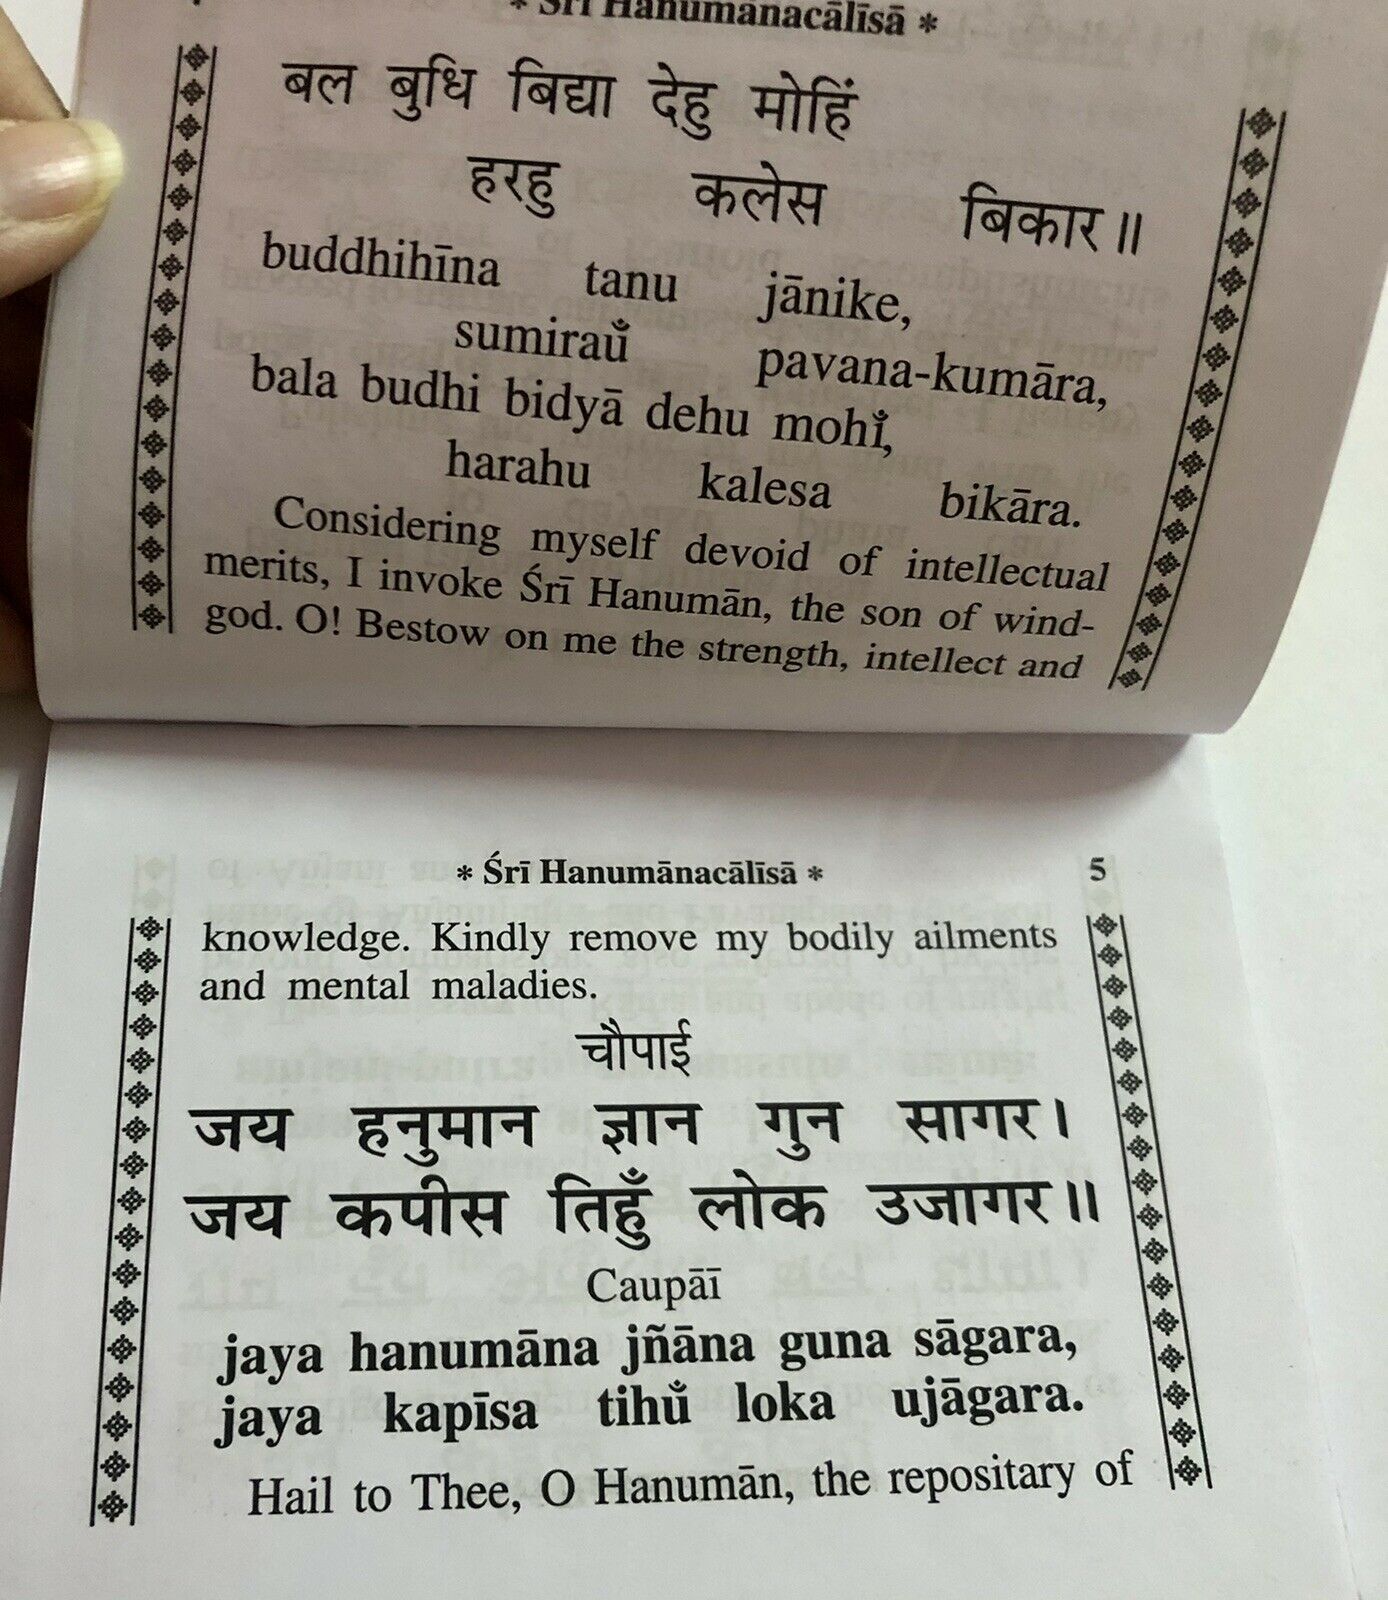 * Śrī Hanumānacālīsā *
बल बुधि बिद्या देहु मोहिं
हरहु कलेस बिकार॥
buddhihīna tanu jānike,
sumiraům̐ pavana-kumāra,
bala budhi bidyā dehu mohim̐,
harahu kalesa bikāra.
Considering myself devoid of intellectual
merits, I invoke Śrī Hanumān, the son of wind-
god. O! Bestow on me the strength, intellect and
* Śrī Hanumānacālīsā * 5
knowledge. Kindly remove my bodily ailments
and mental maladies.
चौपाई
जय हनुमान ज्ञान गुन सागर।
जय कपीस तिहुँ लोक उजागर॥
Caupāī
jaya hanumāna jñāna guna sāgara,
jaya kapīsa tihům̐ loka ujāgara.
Hail to Thee, O Hanumān, the repositary of